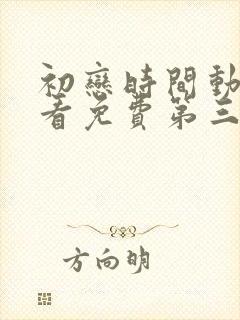 初戀時間動
看免費第三
方向明